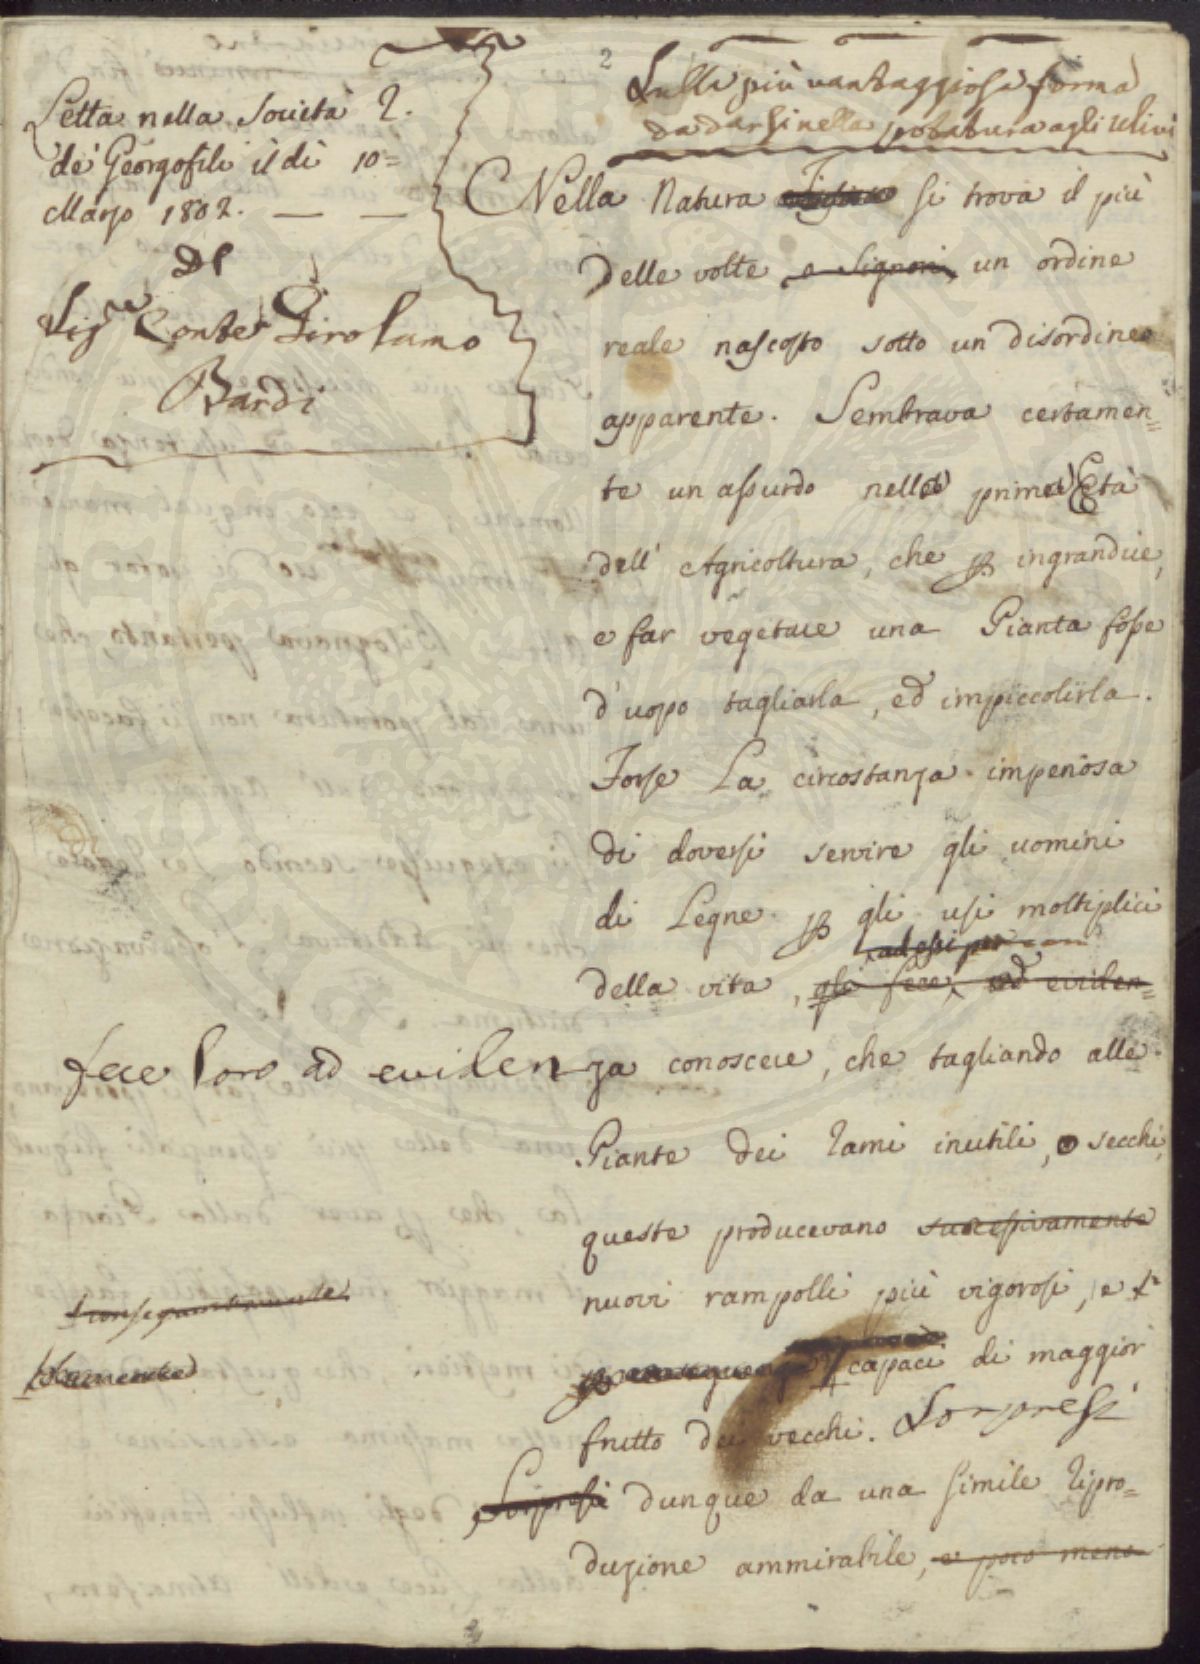 2
Letta nella Società R.
de' Georgofili il dì 10=
Marzo 1802. — —
Del
Sig.re Conte Girolamo
Bardi
Sulla più vantaggiosa forma
da darsi nella potatura agli Ulivi
Nella Natura si trova il più
delle volte o Signori, un ordine
reale nascosto sotto un disordine
apparente. Sembrava certamen=
te un assurdo nella prima Età
dell' Agricoltura, che p ingrandire,
e far vegetare una Pianta fosse
d'uopo tagliarla, ed impiccolirla.
Forse La circostanza imperiosa
di doversi servire gli uomini
di Legne p gli usi moltiplici
ad essi per
della vita, gli fece, ad eviden=
fece loro ad evidenza conoscere, che tagliando alle
Piante dei rami inutili, o secchi,
queste producevano successivamente
nuovi rampolli più vigorosi, e
conseguentemente
capaci di maggior
frutto dei vecchi. Sorpresi
Sorpresi dunque da una simile ripro=
duzione ammirabile, e poco meno